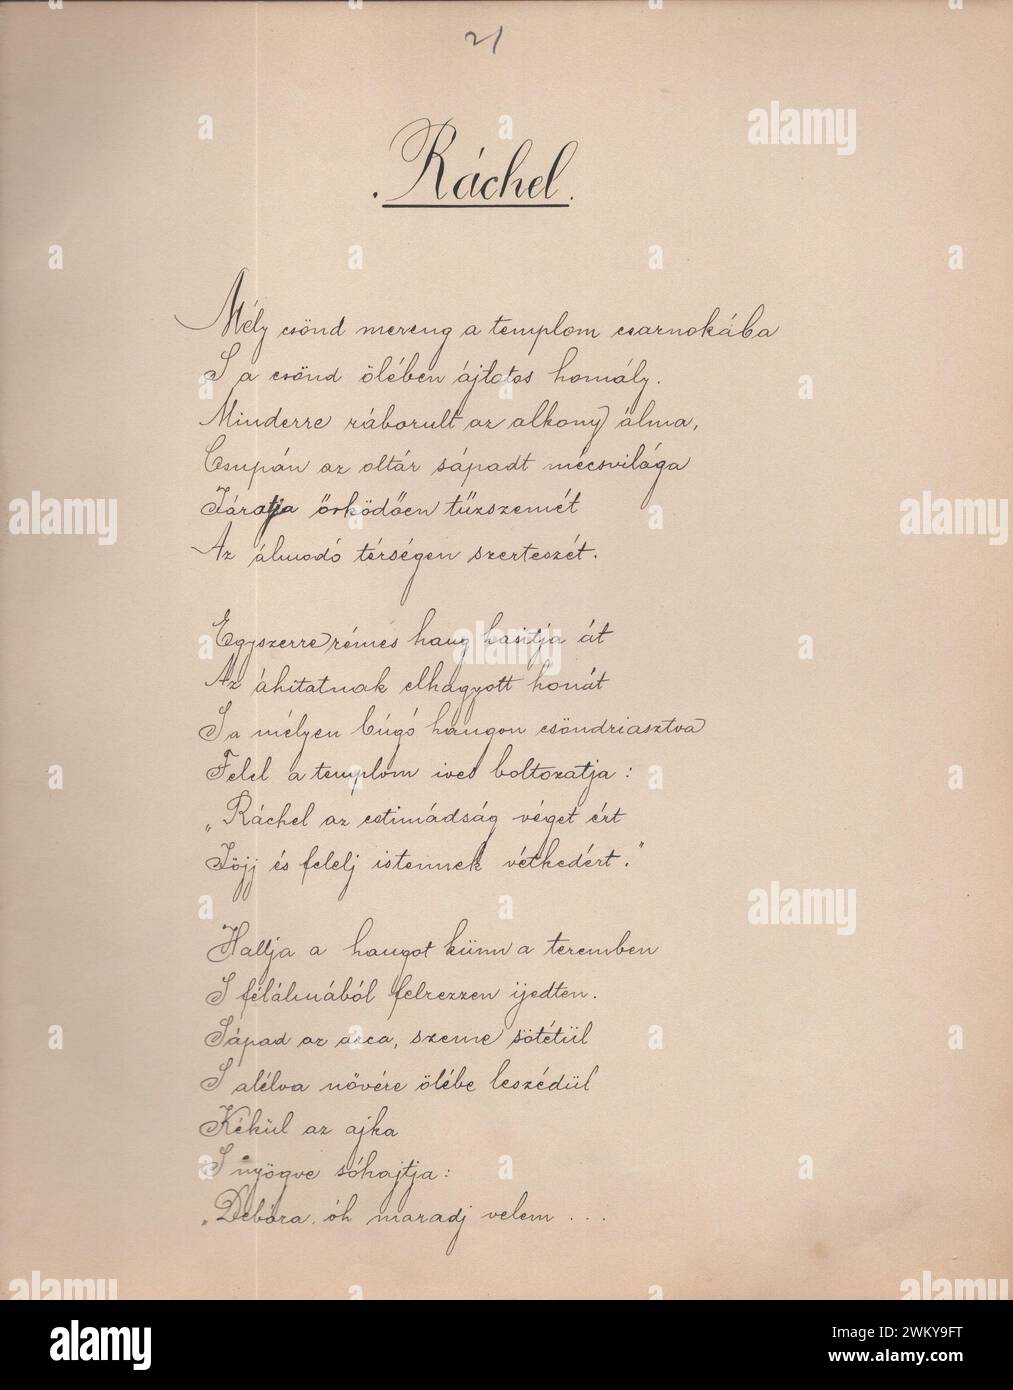 21
Ráchel.
Mély csönd mereng a templom csarnokába
S a csönd ölében ájtatos homály.
Minderre ráborult az alkony álma,
Csupán az oltár sápadt mécsvilága
Járatja őrködően tűzszemét
Az álmodó térségen szerteszét.
Egyszerre rémes hang hasitja át
Az áhitatnak elhagyott honát
S a mélyen búgó hangon csöndriasztva
Felel a templom ives boltozatja:
„Ráchel az estimádság véget ért
Jöjj és felelj istennek vétkedért."
Hallja a hangot künn a teremben
S félálmából felrezzen ijedten.
Sápad az arca, szeme sötétül
S alélva nővére ölébe leszédül
Kékül az ajka
S nyögve sóhajtja:
„Debóra, óh maradj velem ...
alamy
Image ID: 2WKY9FT
www.alamy.com